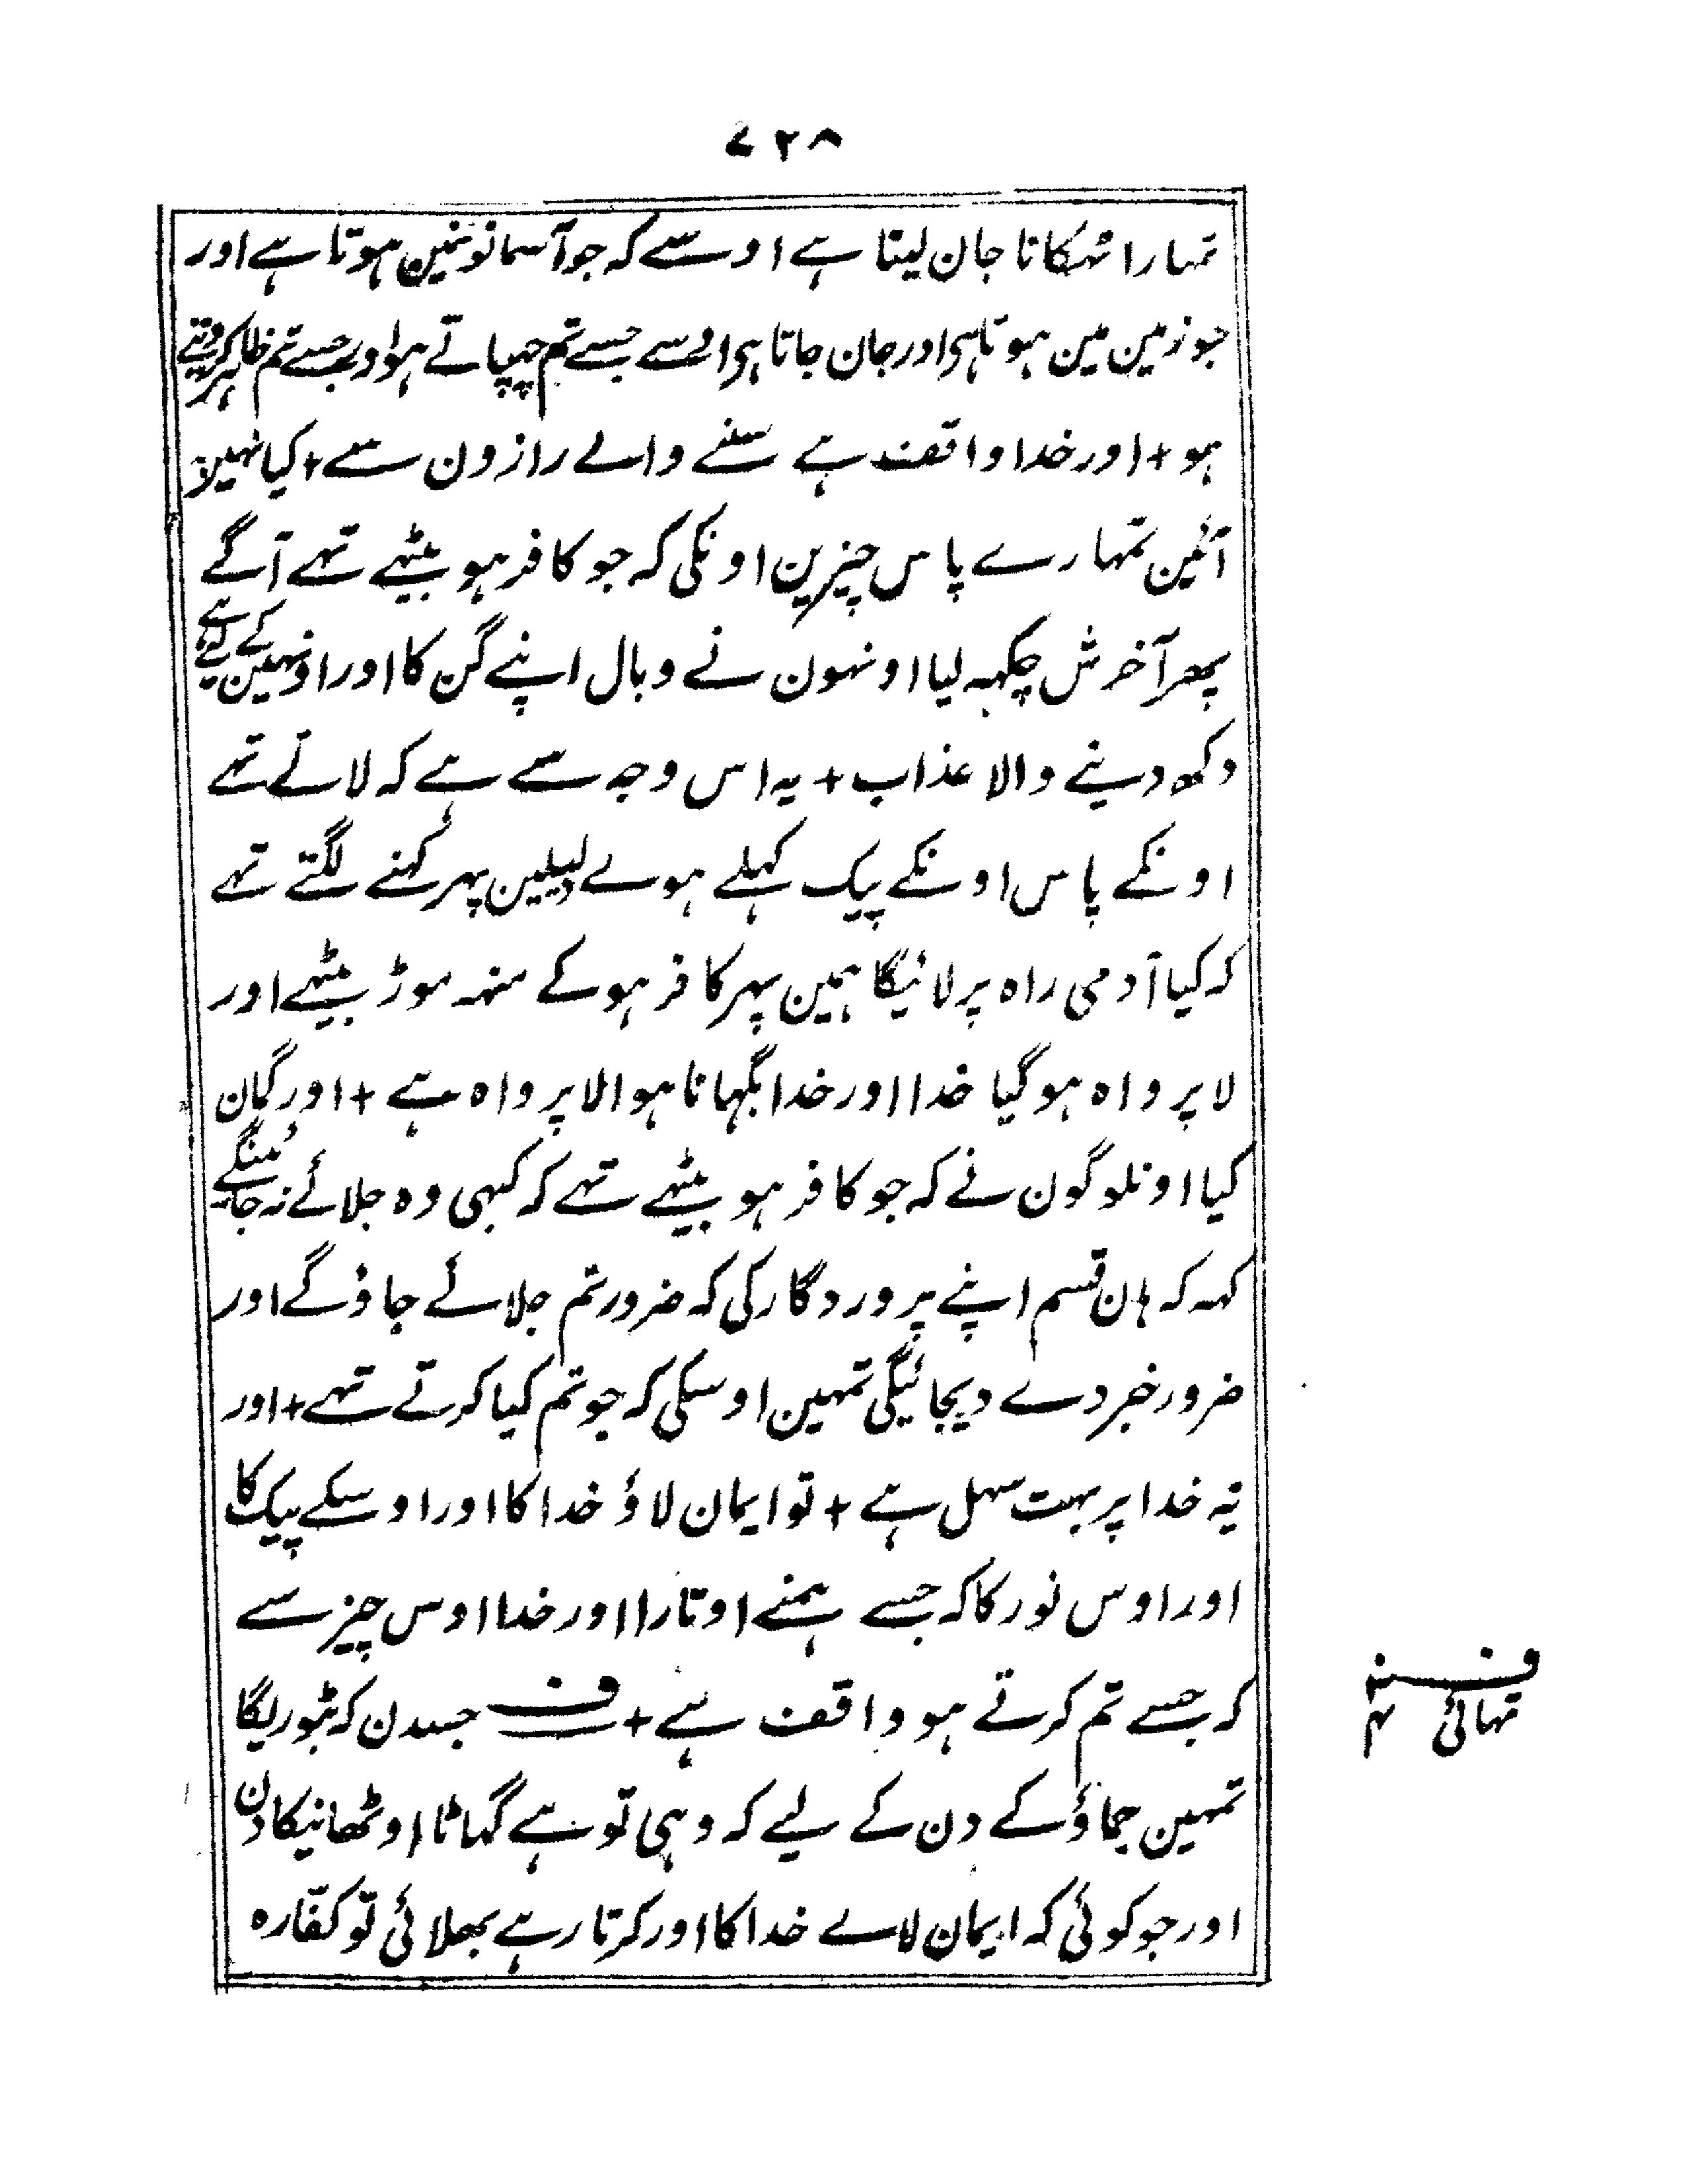 ۷۲۸
تمہارا ٹہکانا جان لیتا ہے اوسے کہ جو آسمانونمین ہوتا ہے اور
جو زمین مین ہوتا ہی اور جان جاتا ہی اوسے جسے تم چھپاتے ہو اور جسے تم ظاہر کردیتے
ہو + اور خدا واقف ہے سننے والے رازون سے + کیا نہین
آئین تمہارے پاس چیزین اونکی کہ جو کافر ہو بیٹھے تہے آگے
پھر آخرش چکہہ لیا اونہون نے وبال اپنے گن کا اور اونہین کے لیے ہے
دکھ دینے والا عذاب + یہ اس وجہ سے ہے کہ لاتے تہے
اونکے پاس اونکے پیک کہلے ہوے دلیلین پہر کہنے لگتے تہے
کہ کیا آدمی راہ پر لائیگا ہمین پہر کافر ہوکے منہہ موڑ بیٹھے اور
لا پرواہ ہوگیا خدا اور خدا بگہانا ہوا لاپرواہ ہے + اور گمان
کیا اونلوگون نے کہ جو کافر ہو بیٹھے تہے کہ کبہی وہ جلائے نہ جائینگے
کہہ کہ ہان قسم اپنے پروردگار کی کہ ضرور تم جلائے جاؤگے اور
ضرور خبر دے دیجائیگی تمہین اوسکی کہ جو تم کیا کرتے تہے + اور
یہ خدا پر بہت سہل ہے + تو ایمان لاؤ خدا کا اور اوسکے پیک کا
اور اوس نور کا کہ جسے ہمنے اوتارا اور خدا اوس چیز سے
کہ جسے تم کرتے ہو واقف ہے + ف جسدن کہ بٹوریگا
تمہین جماؤکے دن کے لیے کہ وہی تو ہے گہاٹا اوٹھانیکا دن
اور جو کوئی کہ ایمان لاے خدا کا اور کرتا رہے بھلائی تو کفّارہ
ف
تہائی